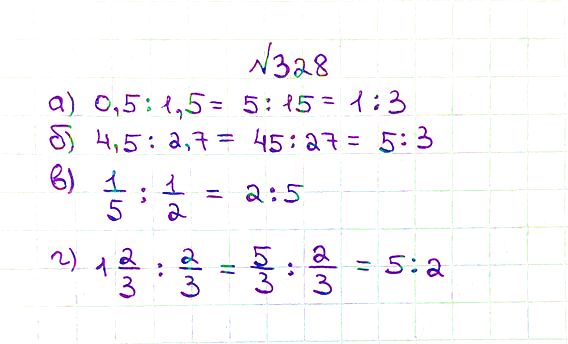 √328
а) 0,5 : 1,5 = 5 : 15 = 1 : 3
б) 4,5 : 2,7 = 45 : 27 = 5 : 3
в) 1/5 : 1/2 = 2 : 5
г) 1 2/3 : 2/3 = 5/3 : 2/3 = 5 : 2